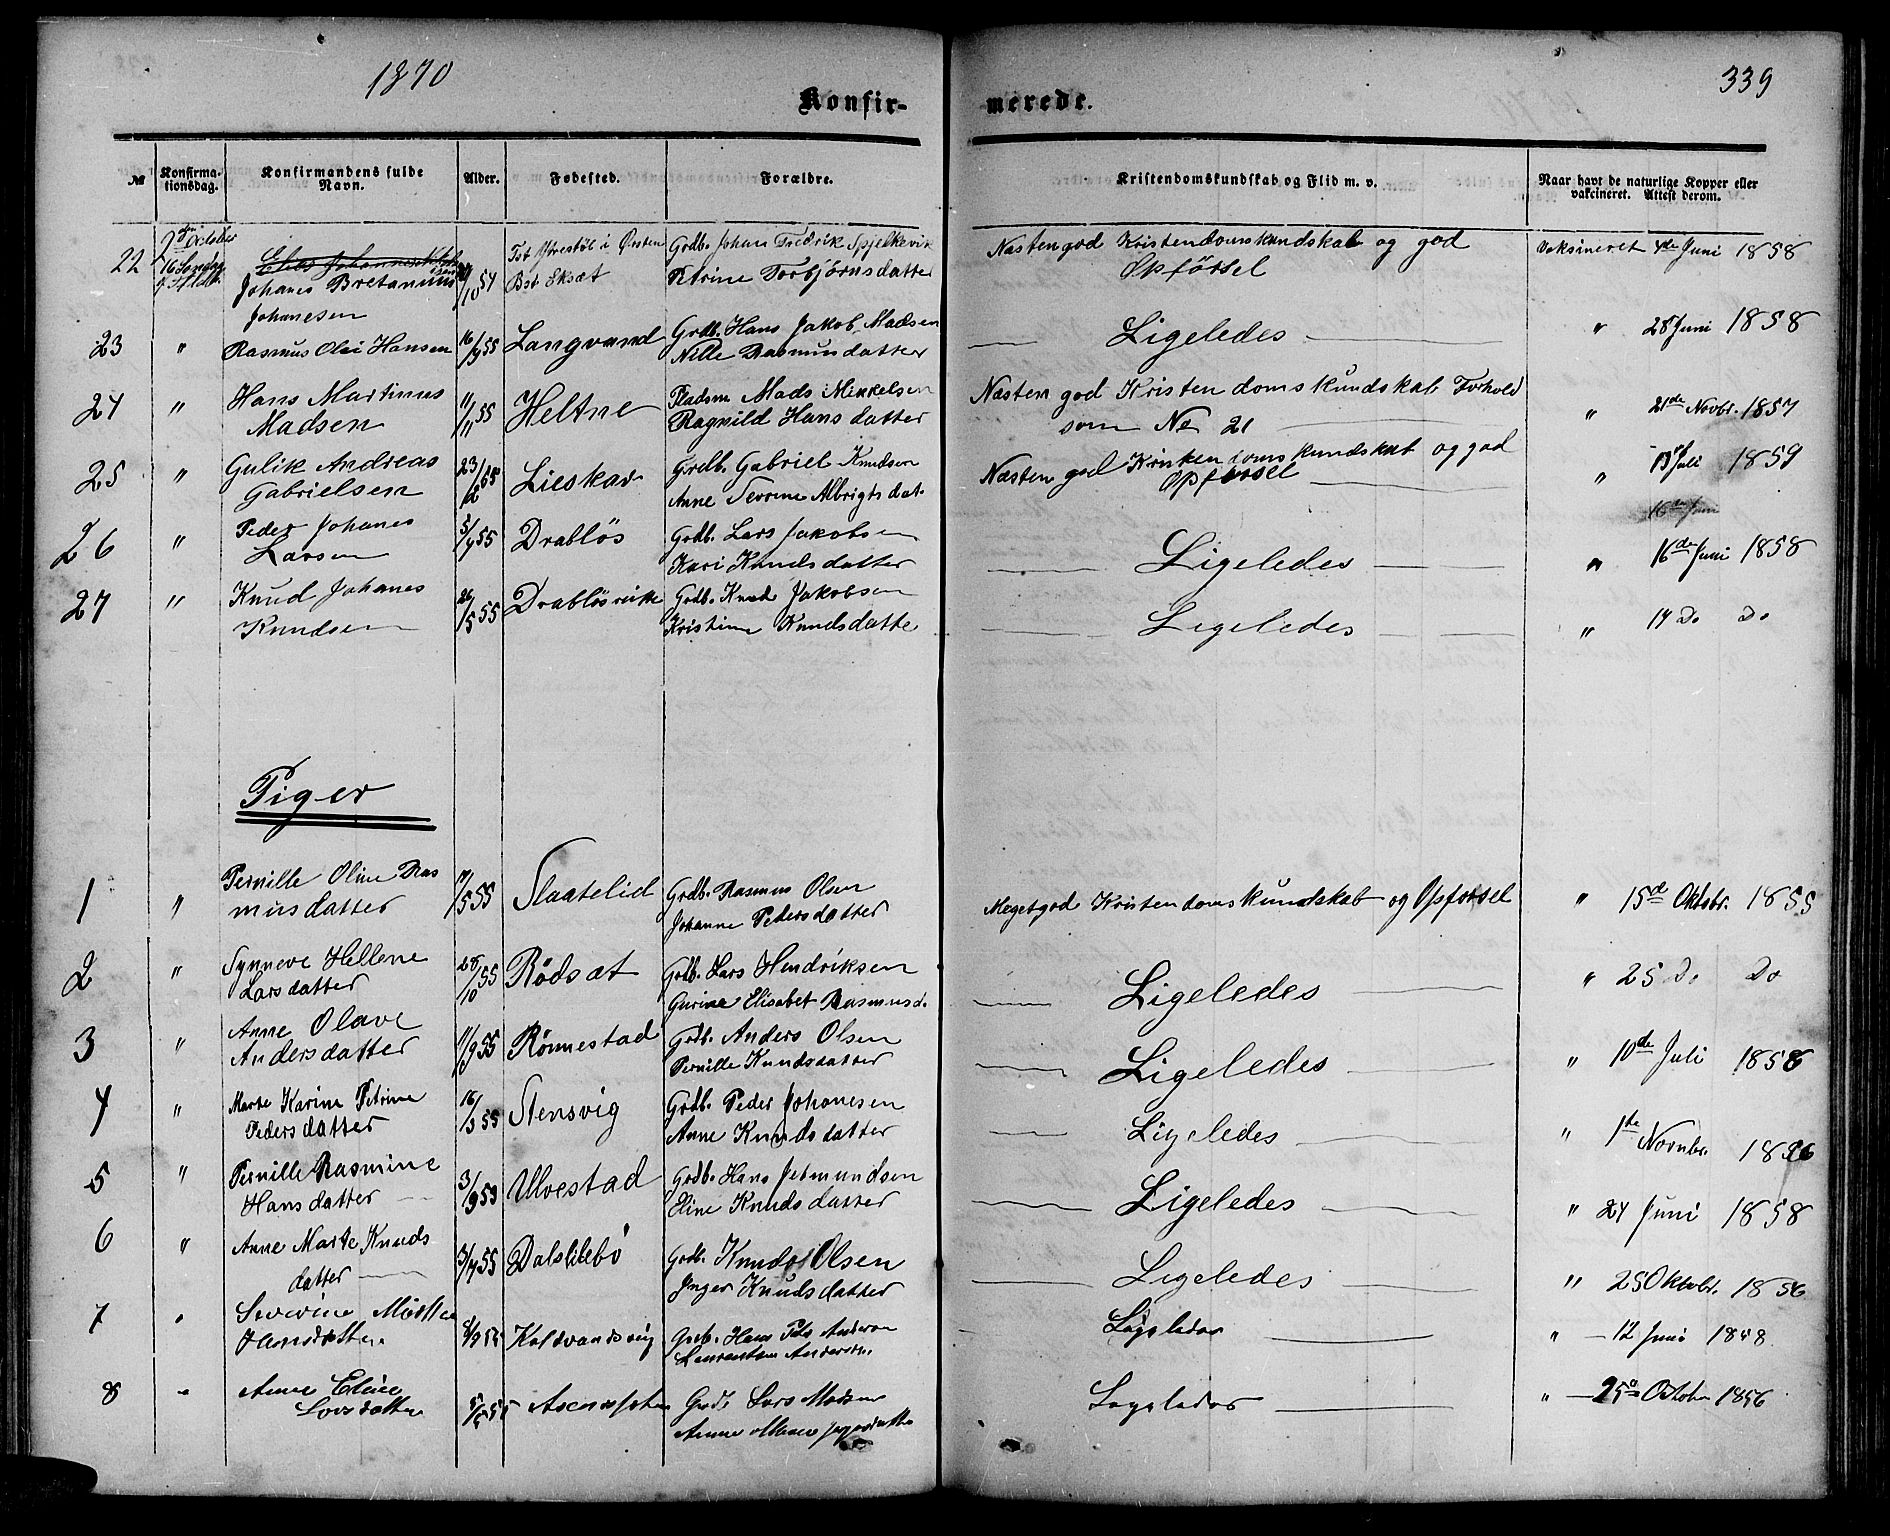 1870
339
Konfir- merede.
№ Konfirma-tionsdag. Konfirmandens fulde Navn. Alder. Fødested. Forældre. Kristendomskundskab og Flid m. v. Naar havt de naturlige Kopper eller vakcineret. Attest derom.
22 9de October 16 Søndag Johanes Bretanius Johanesen 10 54 i Ørsten Bst Eksæt Grdb. Johan Fredrik Spjelkevik Petrine Torbjørnsdatter Næsten god Kristendomskundskab og god Opførsel Vaksineret 4de Juni 1858
23 " Rasmus Olai Hansen 16/9 55 Langvand Grdb. Hans Jakob Madsen Nille Rasmusdatter Ligeledes " 28 Juni 1858
24 " Hans Martinus Madsen 11/11 55 Heltne Pladsm Mads Mikkelsen Ragnild Hansdatter Næsten god Kristendomskundskab Forhold som No 21 " 21de Novbr. 1857
25 " Gulik Andreas Gabrielsen 23/12 55 Lieskar Grdb. Gabriel Knudsen Anne Severine Albrigtsdat. Næsten god Kristendomskundskab og god Opførsel " 13 Juli 1859
16de Juni
26 " Peder Johanes Larsen 5/9 55 Drabløs Grdb. Lars Jakobsen Kari Knudsdatter Ligeledes " 16de Juni 1858
27 " Knud Johanes Knudsen 26/5 55 Drabløsvike Grdb. Knud Jakobsen Kristine Knudsdatte Ligeledes " 14 Do Do
Piger
1 " Pernille Oline Rasmusdatter 5 55 Slaatelid Grdb. Rasmus Olsen Johanne Pedersdatter Meget god Kristendomskundskab og Opførsel " 15d Oktobr. 1855
2 " Synneve Hellene Larsdatter 28/10 55 Rødsæt Grdb. Lars Hendriksen Gurine Elisabet Rasmusd. Ligeledes " 25 Do Do
3 " Anne Olave Andersdatter 11/9 55 Rønnestad Grdb. Anders Olsen Pernille Knudsdatter Ligeledes " 10de Juli 1858
4 " Marte Karine Petrine Pedersdatter 16/3 55 Stensvig Grdb. Peder Johanesen Anne Knudsdatter Ligeledes " 1te Novnbr. 1856
5 " Pernille Rasmine Hansdatter 3/9 53 Ulvestad Grdb. Hans Jetmundsen Eline Knudsdatter Ligeledes " 24 Juni 1858
6 " Anne Marte Knudsdatter 3/7 55 Dalslebø Grdb. Knud Olsen Inger Knudsdatter Ligeledes " 25 Oktobr. 1856
7 " Severine Hansdatter Koldvandsvig Grdb. Hans Andersen Ligeledes " 12 Juni 1858
8 " Anne Eline Larsdatter Grdb Lars Madsen Anne Ligeledes " 25 October 1856